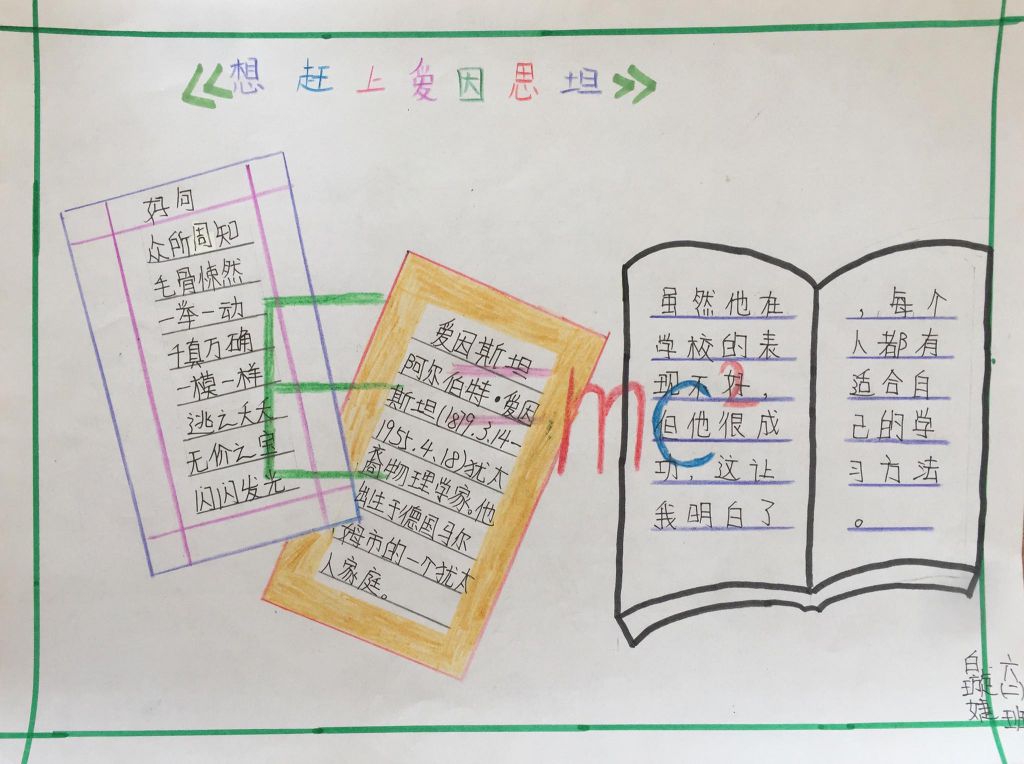 《想赶上爱因思坦》
好句
众所周知
毛骨悚然
一举一动
千真万确
一模一样
逃之夭夭
无价之宝
闪闪发光
E=mc²
爱因斯坦
阿尔伯特·爱因
斯坦(1879.3.14—
1955.4.18)犹太
裔物理学家。他
出生于德国乌尔
姆市的一个犹太
人家庭。
虽然他在
学校的表
现不好,
但他很成
功,这让
我明白了
,每个
人都有
适合自
己的学
习方法
。
六(二)班
白璇婕